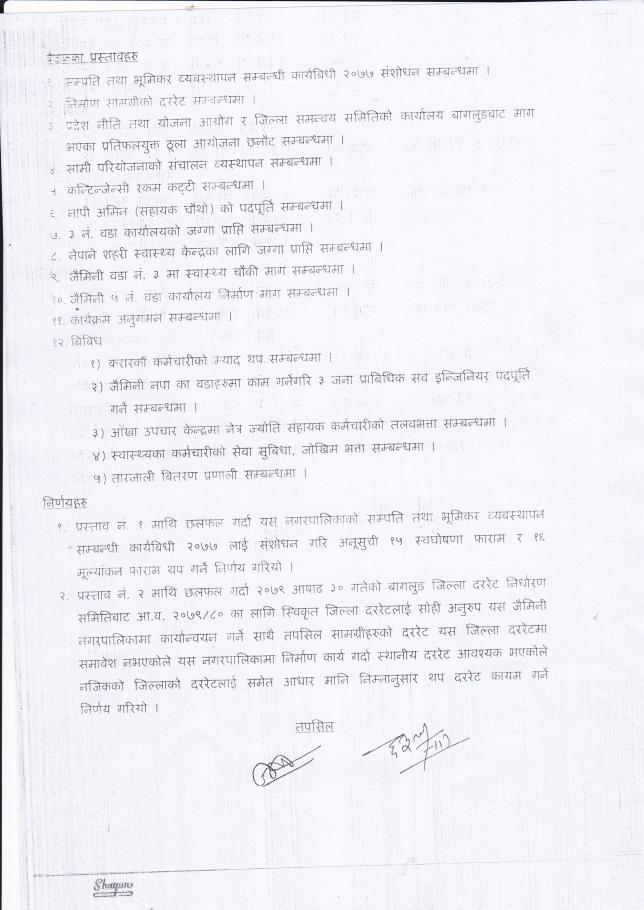 बैठकका प्रस्तावहरु
१. सम्पति तथा भूमिकर व्यवस्थापन सम्बन्धी कार्यबिधी २०७७ संशोधन सम्बन्धमा ।
२. निर्माण सामग्रीको दररेट सम्बन्धमा ।
३. प्रदेश नीति तथा योजना आयोग र जिल्ला समन्वय समितिको कार्यालय बागलुङबाट माग
भएका प्रतिफलयुक्त ठूला आयोजना छनौट सम्बन्धमा ।
४. सामी परियोजनाको संचालन व्यस्थापन सम्बन्धमा ।
५. कन्टिन्जेन्सी रकम कट्टी सम्बन्धमा ।
६. नापी अमिन (सहायक चौथो) को पदपूर्ति सम्बन्धमा ।
७. ३ नं. वडा कार्यालयको जग्गा प्राप्ति सम्बन्धमा ।
८. नेपाने शहरी स्वास्थ्य केन्द्रका लागि जग्गा प्राप्ति सम्बन्धमा ।
९. जैमिनी वडा नं. ३ मा स्वास्थ्य चौकी माग सम्बन्धमा ।
१०. जैमिनी ५ नं. वडा कार्यालय निर्माण माग सम्बन्धमा ।
११. कार्यक्रम अनुगमन सम्बन्धमा ।
१२. बिबिध
१) करारका कर्मचारीको म्याद थप सम्बन्धमा ।
२) जैमिनी नपा का वडाहरुमा काम गर्नेगरि ३ जना प्राबिधिक सव इन्जिनियर पदपूर्ति
गर्ने सम्बन्धमा ।
३) आँखा उपचार केन्द्रमा नेत्र ज्योति सहायक कर्मचारीको तलवभत्ता सम्बन्धमा ।
४) स्वास्थ्यका कर्मचारीको सेवा सुबिधा, जोखिम भत्ता सम्बन्धमा ।
५) तारजाली बितरण प्रणाली सम्बन्धमा ।
निर्णयहरु
१. प्रस्ताव नं. १ माथि छलफल गर्दा यस नगरपालिकाको सम्पति तथा भूमिकर व्यवस्थापन
सम्बन्धी कार्यबिधी २०७७ लाई संशोधन गरि अनूसुची १५ स्वघोषणा फाराम र १६
मूल्यांकन फाराम थप गर्ने निर्णय गरियो ।
२. प्रस्ताव नं. २ माथि छलफल गर्दा २०७९ आषाढ ३० गतेको बागलुङ जिल्ला दररेट निर्धारण
समितिबाट आ.व. २०७९/८० का लागि स्विकृत जिल्ला दररेटलाई सोही अनुरुप यस जैमिनी
नगरपालिकामा कार्यान्वयन गर्ने साथै तपसिल सामग्रीहरुको दररेट यस जिल्ला दररेटमा
समावेश नभएकोले यस नगरपालिकामा निर्माण कार्य गर्दा स्थानीय दररेट आवश्यक भएकोले
नजिकको जिल्लाको दररेटलाई समेत आधार मानि निम्नानुसार थप दररेट कायम गर्ने
निर्णय गरियो ।
तपसिल
Shagun